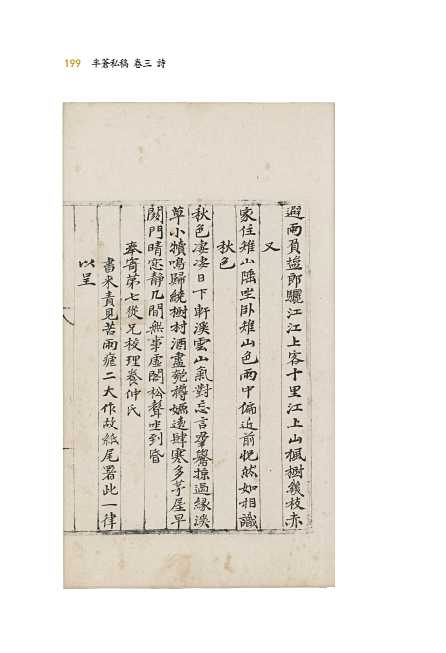 199 半蒼私稿 卷三 詩
避雨負盐郎驪江江上客十里江上山楓樹幾枝赤
又
家住雉山陲坐卧雉山色雨中偏近前怳然如相識
秋色
秋色凄凄日下軒溪雲山氣對忘言羣鷖掠過緣溪
草小犢鳴歸繞樹村酒盡匏樽嫌遠肆寒多茅屋早
関門晴窓靜几閒無事虛閣松聲坐到昏
奉寄第七從兄校理養仲氏
書來責見苦雨瘧二大作故紙尾署此一律
以呈